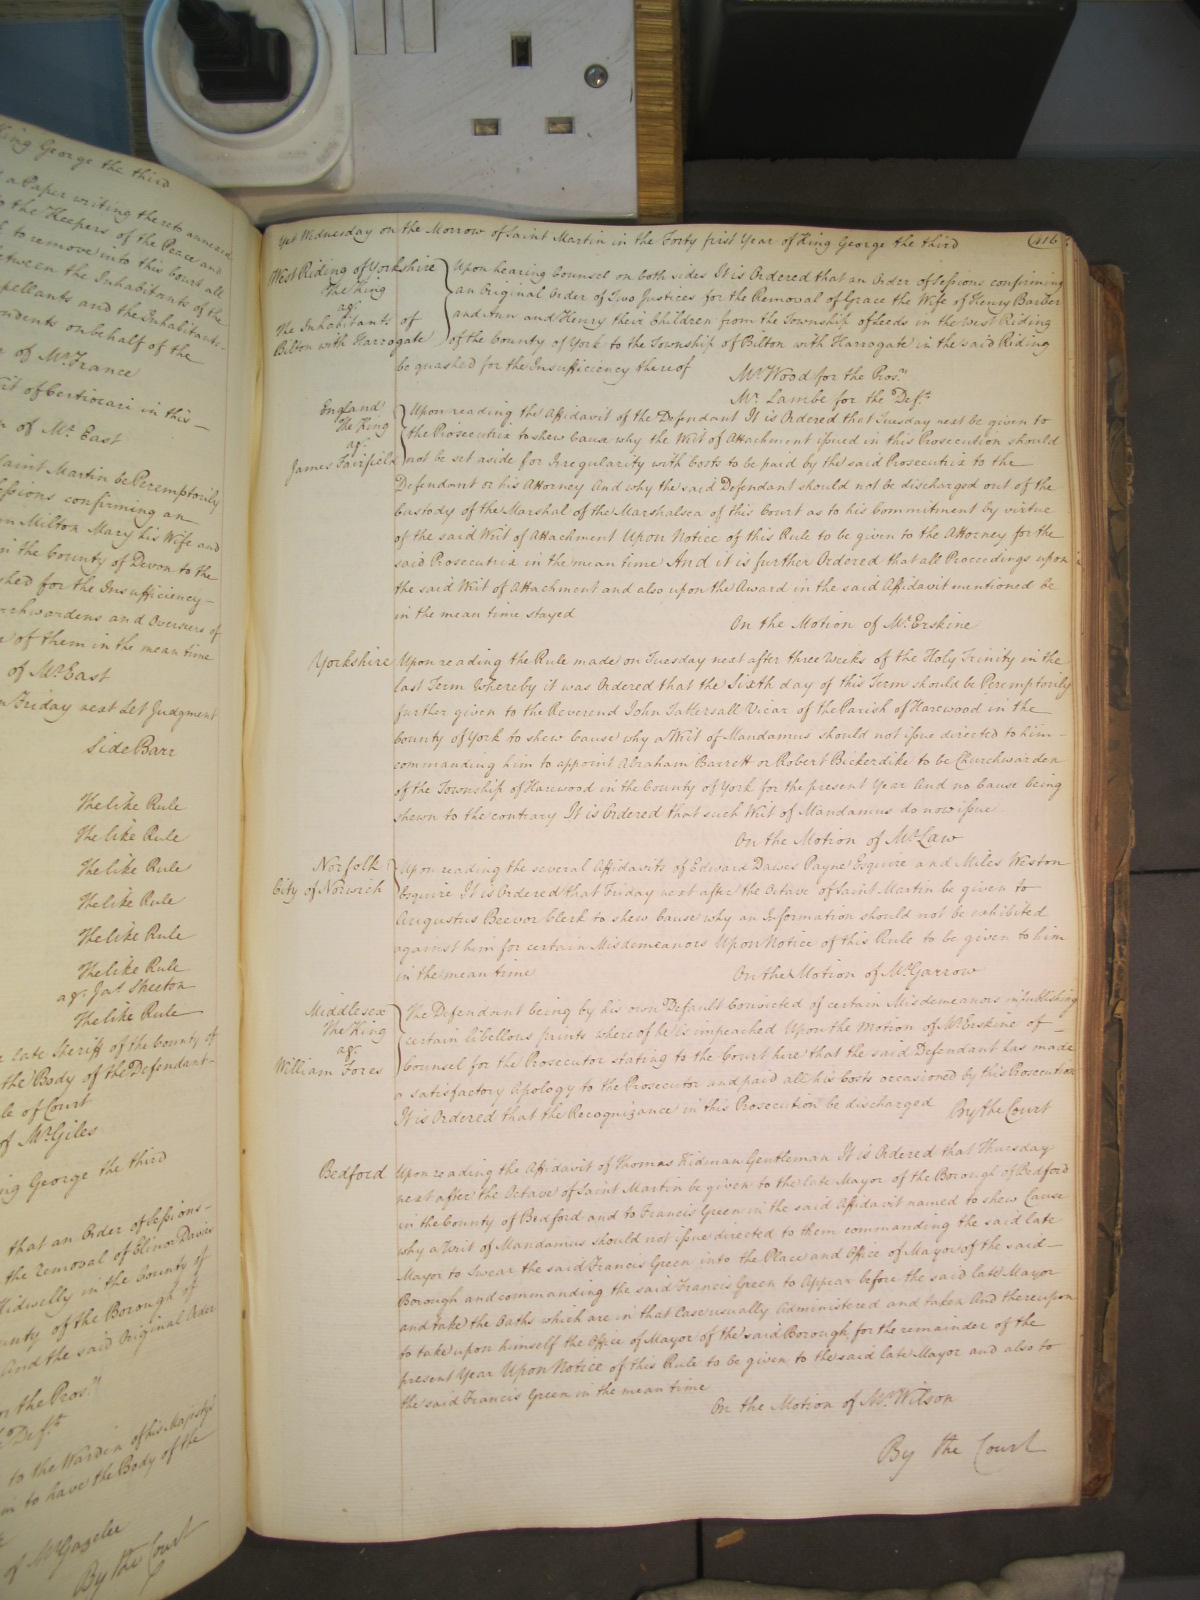 King George the third
a Paper writing thereto annexed
to the Keepers of the Peace and
to remove into this Court all
between the Inhabitants of the
Appellants and the Inhabitants
on behalf of the
of Mr. France
of Certiorari in this
of Mr. East
Saint Martin be Peremptorily
Sessions confirming an
Milton Mary his Wife and
in the County of Devon to the
for the Insufficiency
and Overseers of
of them in the mean time
of Mr. East
Friday next Let Judgment
Side Barr
The like Rule
The like Rule
The like Rule
The like Rule
The like Rule
The like Rule
agt. Jas. Skeeton
The like Rule
late Sheriff of the County of
the Body of the Defendant
of Court
of Mr. Giles
King George the third
that an Order of Sessions
the Removal of Elinor Davis
Kidwelly in the County of
of the Borough of
And the said Original Order
the Pros.r
Def.t
to the Warden of his Majestys
to have the Body of the
of Mr. Gazelee
By the Court
Yet Wednesday on the Morrow of Saint Martin in the Forty first Year of King George the third 416
West Riding of Yorkshire
The King
agt.
The Inhabitants of
Bilton with Harrogate
Upon hearing Counsel on both sides It is Ordered that an Order of Sessions confirming
an Original Order of Two Justices for the Removal of Grace the Wife of Henry Barber
and Ann and Henry their Children from the Township of Leeds in the West Riding
of the County of York to the Township of Bilton with Harrogate in the said Riding
be quashed for the Insufficiency thereof
Mr. Wood for the Pros.r
Mr. Lambe for the Def.t
England
The King
agt.
James Fairfield
Upon reading the Affidavit of the Defendant It is Ordered that Tuesday next be given to
the Prosecutrix to shew Cause why the Writ of Attachment issued in this Prosecution should
not be set aside for Irregularity with Costs to be paid by the said Prosecutrix to the
Defendant or his Attorney And why the said Defendant should not be discharged out of the
Custody of the Marshal of the Marshalsea of this Court as to his Commitment by virtue
of the said Writ of Attachment Upon Notice of this Rule to be given to the Attorney for the
said Prosecutrix in the mean time And it is further Ordered that all Proceedings upon
the said Writ of Attachment and also upon the Award in the said Affidavit mentioned be
in the mean time stayed
On the Motion of Mr. Erskine
Yorkshire
Upon reading the Rule made on Tuesday next after three Weeks of the Holy Trinity in the
last Term Whereby it was Ordered that the Sixth day of this Term should be Peremptorily
further given to the Reverend John Tattersall Vicar of the Parish of Harewood in the
County of York to shew Cause why a Writ of Mandamus should not issue directed to him
commanding him to appoint Abraham Barrett or Robert Bickerdike to be Churchwarden
of the Township of Harewood in the County of York for the present Year And no Cause being
shewn to the contrary It is Ordered that such Writ of Mandamus do now issue
On the Motion of Mr. Law
Norfolk
City of Norwich
Upon reading the several Affidavits of Edward Dawes Payne Esquire and Miles Weston
Esquire It is Ordered that Friday next after the Octave of Saint Martin be given to
Augustus Beevor Clerk to shew Cause why an Information should not be exhibited
against him for certain Misdemeanors Upon Notice of this Rule to be given to him
in the mean time
On the Motion of Mr. Garrow
Middlesex
The King
agt.
William Fores
The Defendant being by his own Default Convicted of certain Misdemeanors in publishing
certain libellous prints whereof he is impeached Upon the Motion of Mr. Erskine of
Counsel for the Prosecutor stating to the Court here that the said Defendant has made
a satisfactory Apology to the Prosecutor and paid all his Costs occasioned by this Prosecution
It is Ordered that the Recognizance in this Prosecution be discharged By the Court
Bedford
Upon reading the Affidavit of Thomas Kidman Gentleman It is Ordered that Thursday
next after the Octave of Saint Martin be given to the late Mayor of the Borough of Bedford
in the County of Bedford and to Francis Green in the said Affidavit named to shew Cause
why a Writ of Mandamus should not issue directed to them commanding the said late
Mayor to Swear the said Francis Green into the Place and Office of Mayor of the said
Borough and commanding the said Francis Green to Appear before the said late Mayor
and take the Oaths which are in that Case usually Administered and taken And thereupon
to take upon himself the Office of Mayor of the said Borough for the remainder of the
present Year Upon Notice of this Rule to be given to the said late Mayor and also to
the said Francis Green in the mean time
On the Motion of Mr. Wilson
By the Court